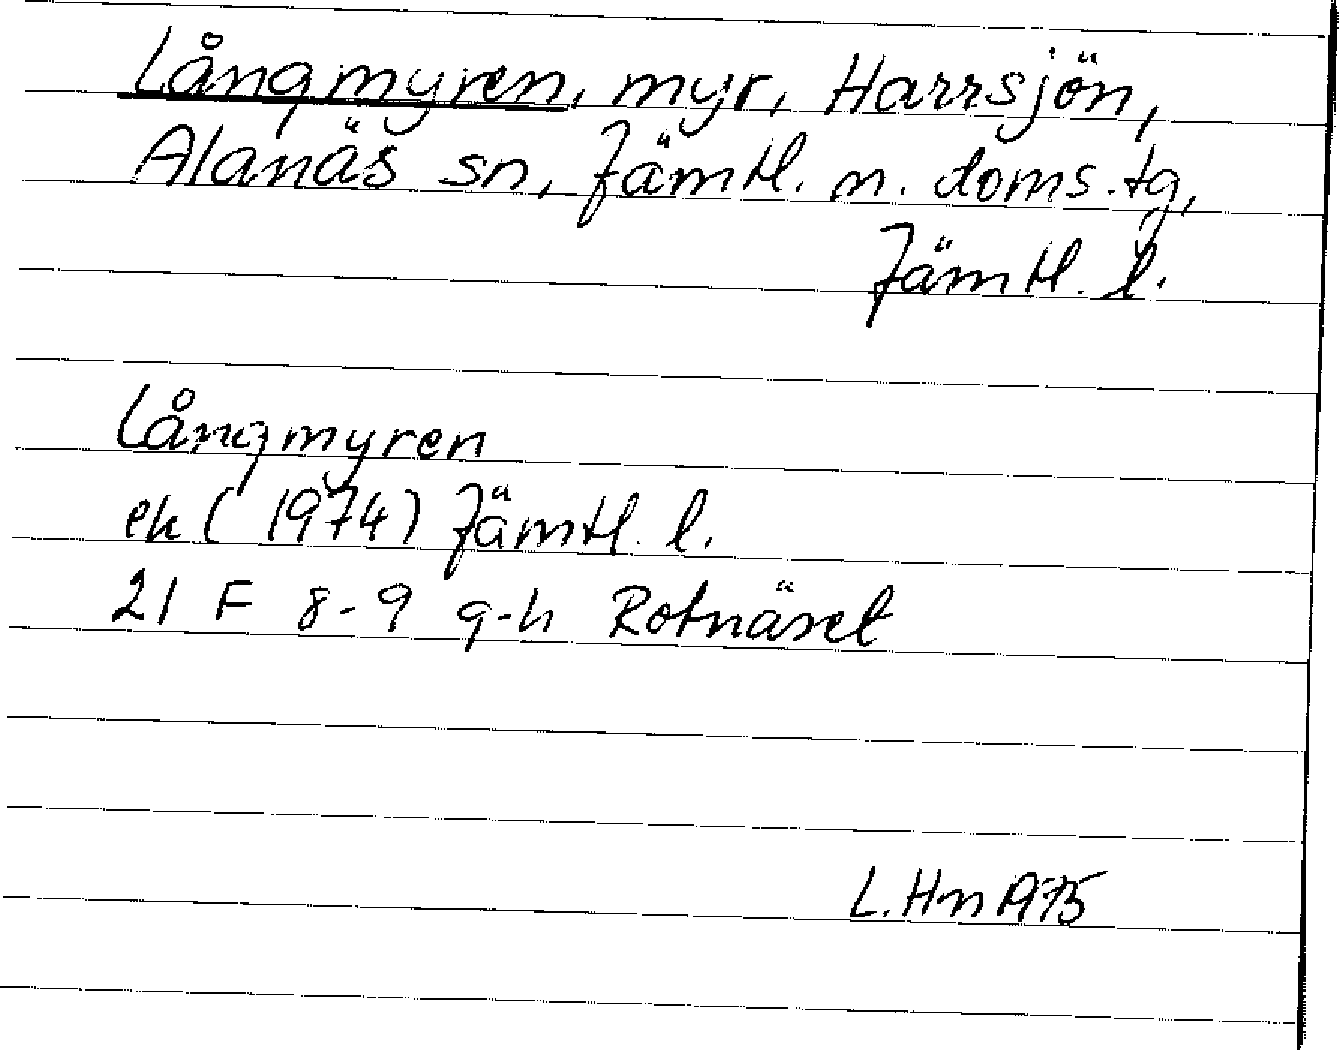 Långmyren, myr, Harrsjön,
Alanäs sn, Jämtl. n. doms.tg,
Jämtl. l.
Långmyren
ek (1974) Jämtl. l.
21 F 8-9 g-h Rotnäset
L.Hn 1975